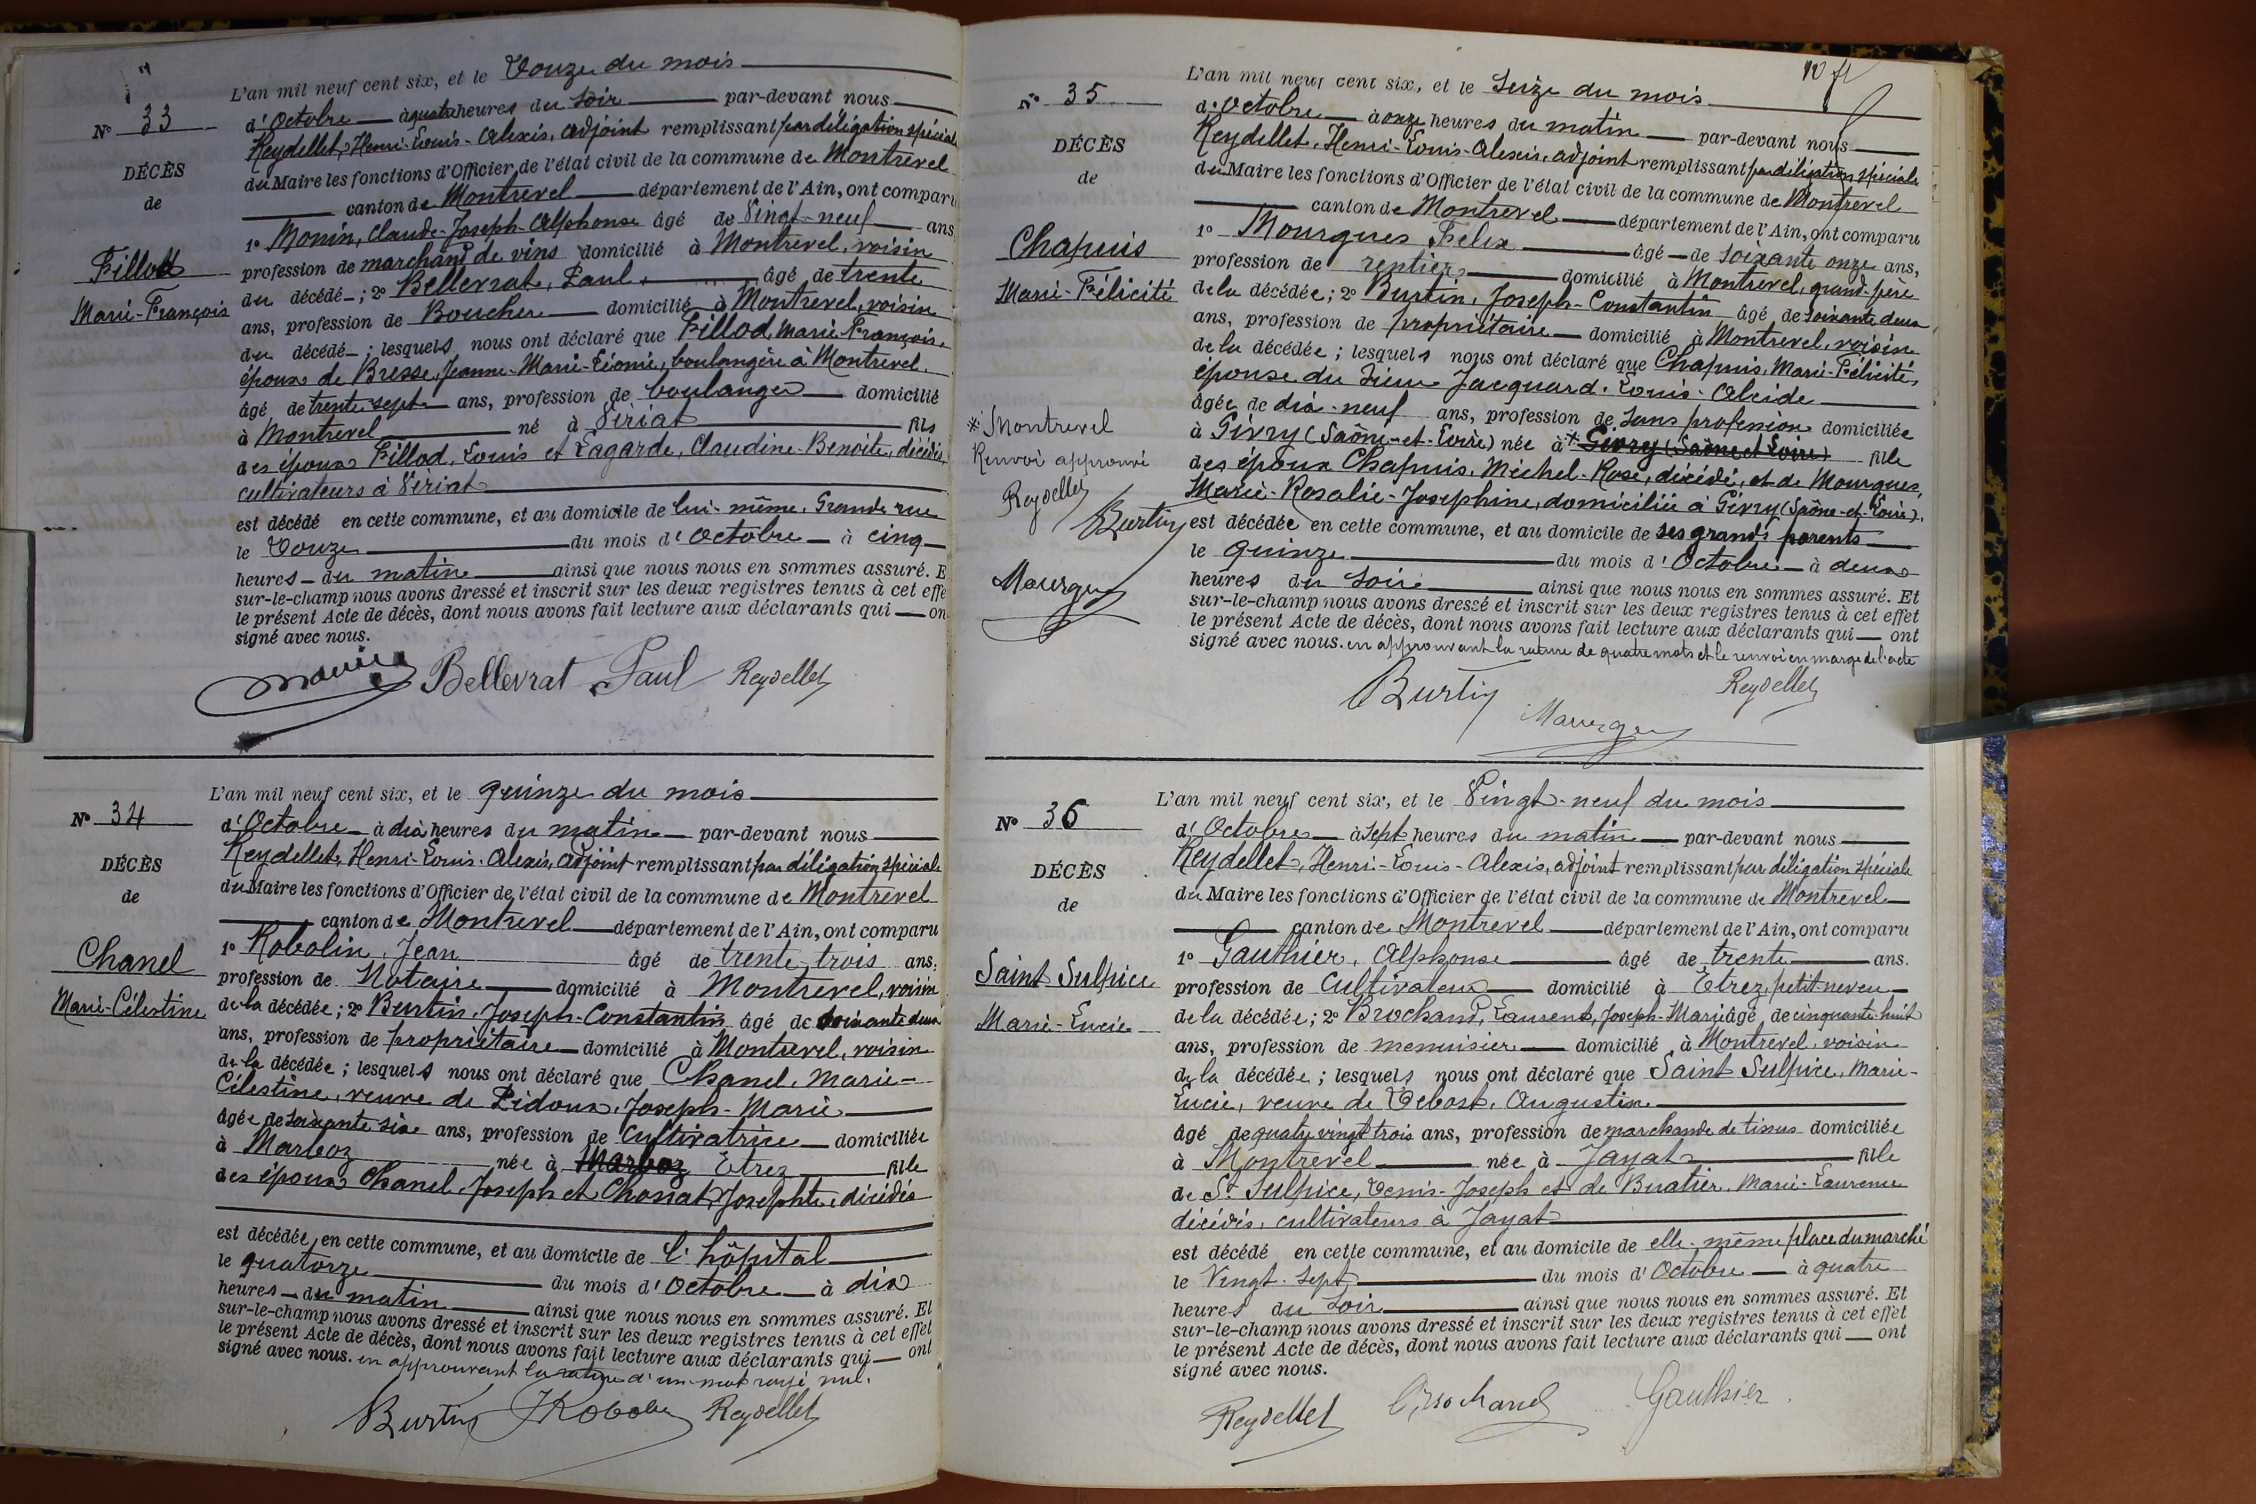 N° 33
DÉCÈS
de
Fillod
Marie-François
L'an mil neuf cent six, et le Douze du mois
d'Octobre à quatre heures du Soir par-devant nous
Reydellet, Henri-Louis-Alexis, adjoint remplissant par délégation spéciale
du Maire les fonctions d'Officier de l'état civil de la commune de Montrevel
canton de Montrevel département de l'Ain, ont comparu
1° Monin, Claude-Joseph-Alphonse âgé de Vingt-neuf ans,
profession de marchand de vins domicilié à Montrevel, voisin
du décédé ; 2° Bellevrat, Paul, âgé de trente
ans, profession de Boucher domicilié à Montrevel, voisin
du décédé ; lesquels nous ont déclaré que Fillod, Marie-François,
époux de Bresse, Jeanne-Marie-Léonie, boulangère à Montrevel,
âgé de trente sept ans, profession de boulanger domicilié
à Montrevel né à Viriat fils
des époux Fillod, Louis et Lagarde, Claudine-Benoite, décédés,
cultivateurs à Viriat
est décédé en cette commune, et au domicile de lui-même, Grande rue
le Douze du mois d'Octobre à cinq
heures du matin ainsi que nous nous en sommes assuré. E
sur-le-champ nous avons dressé et inscrit sur les deux registres tenus à cet effe
le présent Acte de décès, dont nous avons fait lecture aux déclarants qui on
signé avec nous.
Monin Bellevrat Paul Reydellet
N° 34
DÉCÈS
de
Chanel
Marie-Célestine
L'an mil neuf cent six, et le quinze du mois
d'Octobre à dix heures du matin par-devant nous
Reydellet, Henri-Louis-Alexis, adjoint remplissant par délégation spéciale
du Maire les fonctions d'Officier de l'état civil de la commune de Montrevel
canton de Montrevel département de l'Ain, ont comparu
1° Robolin, Jean âgé de trente trois ans,
profession de Notaire domicilié à Montrevel, voisin
de la décédée ; 2° Burtin, Joseph-Constantin âgé de soixante deux
ans, profession de propriétaire domicilié à Montrevel, voisin
de la décédée ; lesquels nous ont déclaré que Chanel, Marie-
Célestine, veuve de Pidoux, Joseph-Marie
âgée de soixante six ans, profession de Cultivatrice domiciliée
à Marboz née à Marboz Etrez fille
des époux Chanel, Joseph et Chonat, Josephte, décédés
est décédée en cette commune, et au domicile de l'hôpital
le quatorze du mois d'Octobre à dix
heures du matin ainsi que nous nous en sommes assuré. Et
sur-le-champ nous avons dressé et inscrit sur les deux registres tenus à cet effet
le présent Acte de décès, dont nous avons fait lecture aux déclarants qui ont
signé avec nous. en approuvant la rature d'un mot rayé nul.
Burtin J Robolin Reydellet
10 ft
N° 35
DÉCÈS
de
Chapuis
Marie-Félicité
L'an mil neuf cent six, et le Seize du mois
d'Octobre à onze heures du matin par-devant nous
Reydellet, Henri-Louis-Alexis, adjoint remplissant par délégation spéciale
du Maire les fonctions d'Officier de l'état civil de la commune de Montrevel
canton de Montrevel département de l'Ain, ont comparu
1° Mourgues Félix âgé de soixante onze ans,
profession de rentier domicilié à Montrevel, grand-père
de la décédée ; 2° Burtin, Joseph-Constantin âgé de soixante deux
ans, profession de propriétaire domicilié à Montrevel, voisin
de la décédée ; lesquels nous ont déclaré que Chapuis, Marie-Félicité,
épouse du Sieur Jacquard, Louis-Alcide
âgée de dix-neuf ans, profession de sans profession domiciliée
à Givry (Saône-et-Loire) née à * Givry (Saône et Loire) fille
des époux Chapuis, Michel-Rose, décédé, et de Mourgues,
Marie-Rosalie-Josephine, domiciliée à Givry (Saône-et-Loire),
est décédée en cette commune, et au domicile de ses grands parents
le quinze du mois d'Octobre à deux
heures du soir ainsi que nous nous en sommes assuré. Et
sur-le-champ nous avons dressé et inscrit sur les deux registres tenus à cet effet
le présent Acte de décès, dont nous avons fait lecture aux déclarants qui ont
signé avec nous. en approuvant la rature de quatre mots et le renvoi en marge de l'acte
* Montrevel
Renvoi approuvé
Reydellet
Burtin
Mourgues
Burtin Mourgues Reydellet
N° 36
DÉCÈS
de
Saint Sulpice
Marie-Lucie
L'an mil neuf cent six, et le Vingt-neuf du mois
d'Octobre à sept heures du matin par-devant nous
Reydellet, Henri-Louis-Alexis, adjoint remplissant par délégation spéciale
du Maire les fonctions d'Officier de l'état civil de la commune de Montrevel
canton de Montrevel département de l'Ain, ont comparu
1° Gauthier, Alphonse âgé de trente ans.
profession de Cultivateur domicilié à Etrez, petit neveu
de la décédée ; 2° Brochand, Laurent, Joseph-Marie âgé de cinquante-huit
ans, profession de menuisier domicilié à Montrevel, voisin
de la décédée ; lesquels nous ont déclaré que Saint Sulpice, Marie-
Lucie, veuve de Debost, Augustin
âgé de quatre vingt trois ans, profession de marchande de tissus domiciliée
à Montrevel née à Jayat fille
de St Sulpice, Denis-Joseph et de Buatier, Marie-Laurence
décédés, cultivateurs à Jayat
est décédé en cette commune, et au domicile de elle-même place du marché
le Vingt-sept du mois d'Octobre à quatre
heures du Soir ainsi que nous nous en sommes assuré. Et
sur-le-champ nous avons dressé et inscrit sur les deux registres tenus à cet effet
le présent Acte de décès, dont nous avons fait lecture aux déclarants qui ont
signé avec nous.
Reydellet Brochand Gauthier